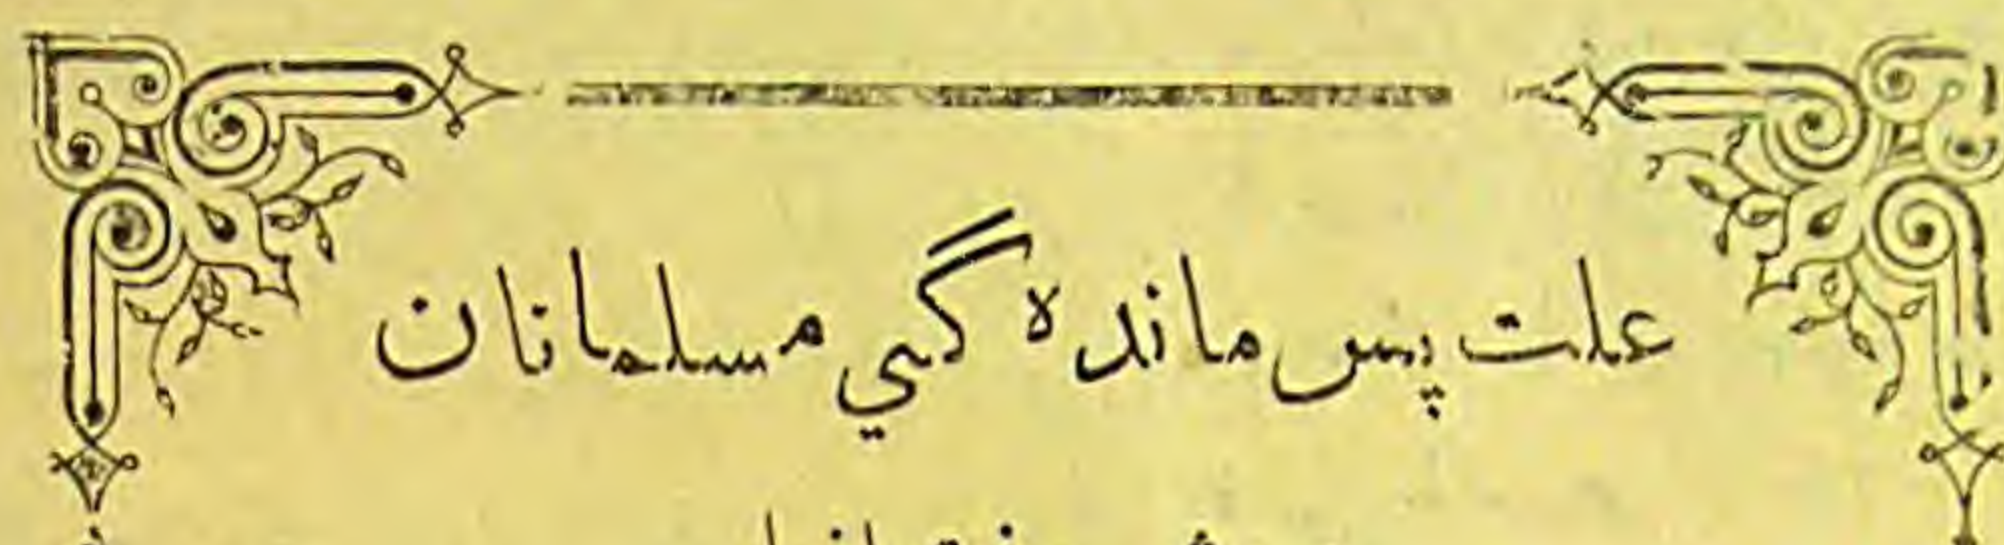 علت پس ماندہ گي مسلمانان